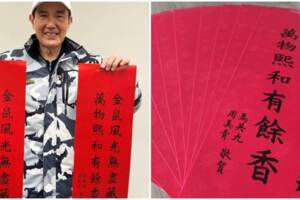 金鼠風光無盡藏
萬物熙和有餘香
金鼠風光無盡藏
萬物熙和有餘香
馬英九
周美青
敬賀